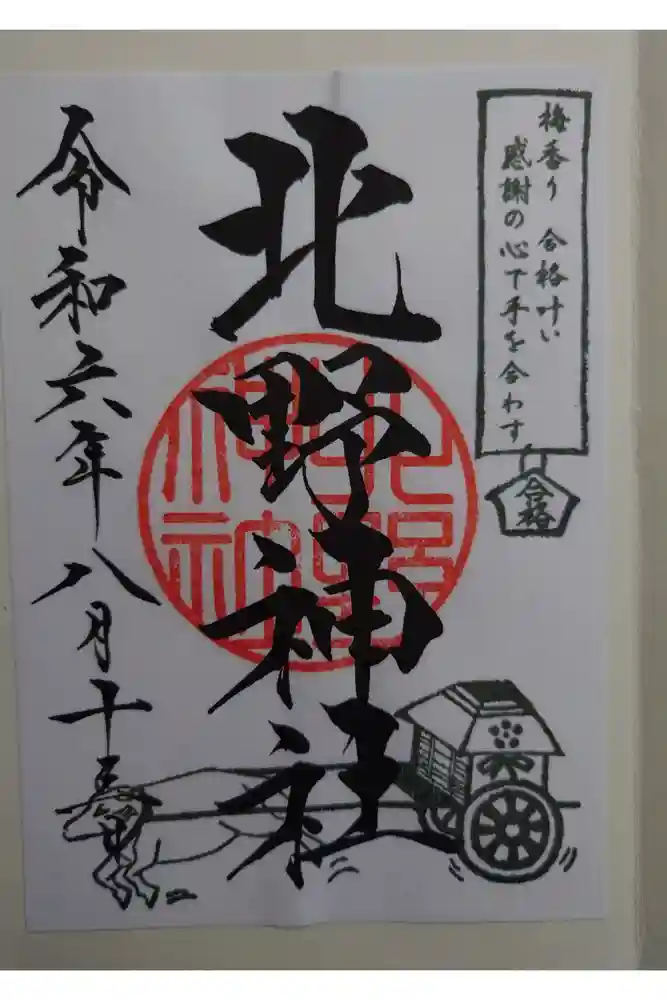 梅香り 合格叶い
感謝の心で手を合わす
合格
北野神社
令和六年八月十三日